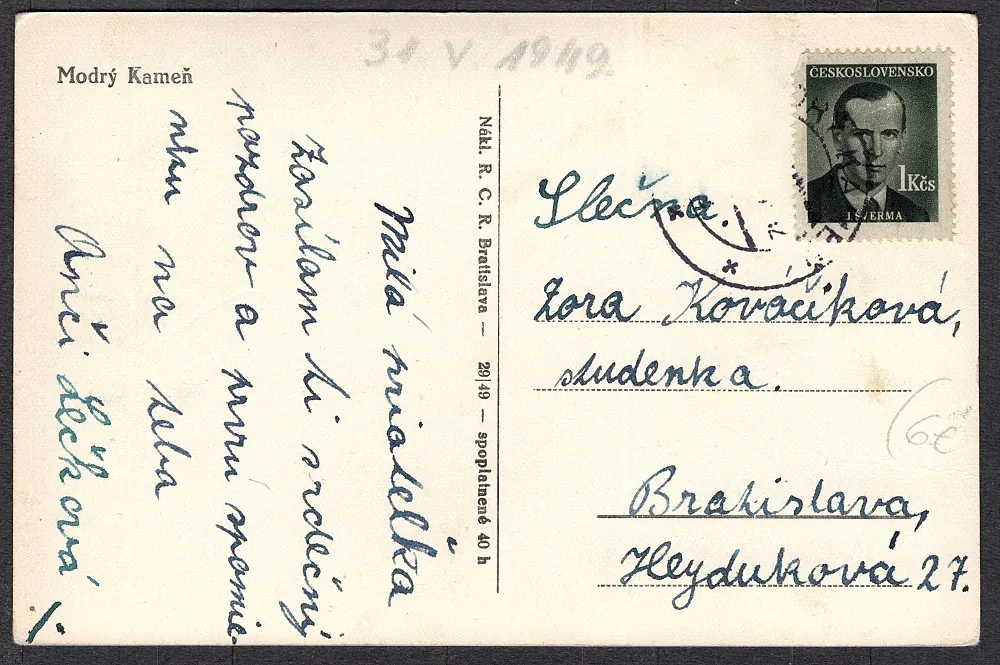 31 V. 1949
Modrý Kameň
Milá priatelka
Zasílam ti srdéčný
pozdrov a prvú spomie-
nku na teba
Anči Léčková
Nákl. R. C. R. Bratislava — 29|49 — spoplatnené 40 h
ČESKOSLOVENSKO
1Kčs
J. ŠVERMA
Slečna
Zora Kováčiková,
študenka.
Bratislava,
Heyduková 27.
(6€